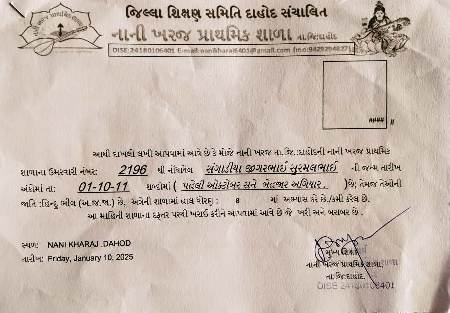 જિલ્લા શિક્ષણ સમિતિ દાહોદ સંચાલિત
નાની ખરજ પ્રાથમિક શાળા તા.જિ.દાહોદ
DISE:24180106401 E-mail:nanikharaj6401@gmail.com (mo:9429294827)
આથી દાખલો લખી આપવામાં આવે છે કે મોજે નાની ખરજ તા.જિ. :દાહોદની નાની ખરજ પ્રાથમિક
શાળાના ઉમરવારી નંબર: 2196 થી નોંધાયેલ સંગાડીયા જીગરભાઈ સુરમલભાઈ ની જન્મ તારીખ
અંકોમાં તા: 01-10-11 શબ્દોમાં ( પહેલી ઓક્ટોબર સને બેહજાર અગિયાર )છે; તેમજ તેઓની
જાતિ :હિન્દુ ભીલ (અ.જ.જા.) છે. અત્રેની શાળામાં હાલ ધોરણ : 8 માં અભ્યાસ કરે છે./કમી કરેલ છે.
આ માહિતી શાળાના દફતર પરથી ખરાઈ કરીને આપવામાં આવે છે જે ખરી અને બરાબર છે .
સ્થળ: NANI KHARAJ ,DAHOD
તારીખ: Friday, January 10, 2025
મુખ્ય શિક્ષક
નાની ખરજ પ્રાથમિક શાળા
તા.જિ.દાહોદ
DISE 24180106401